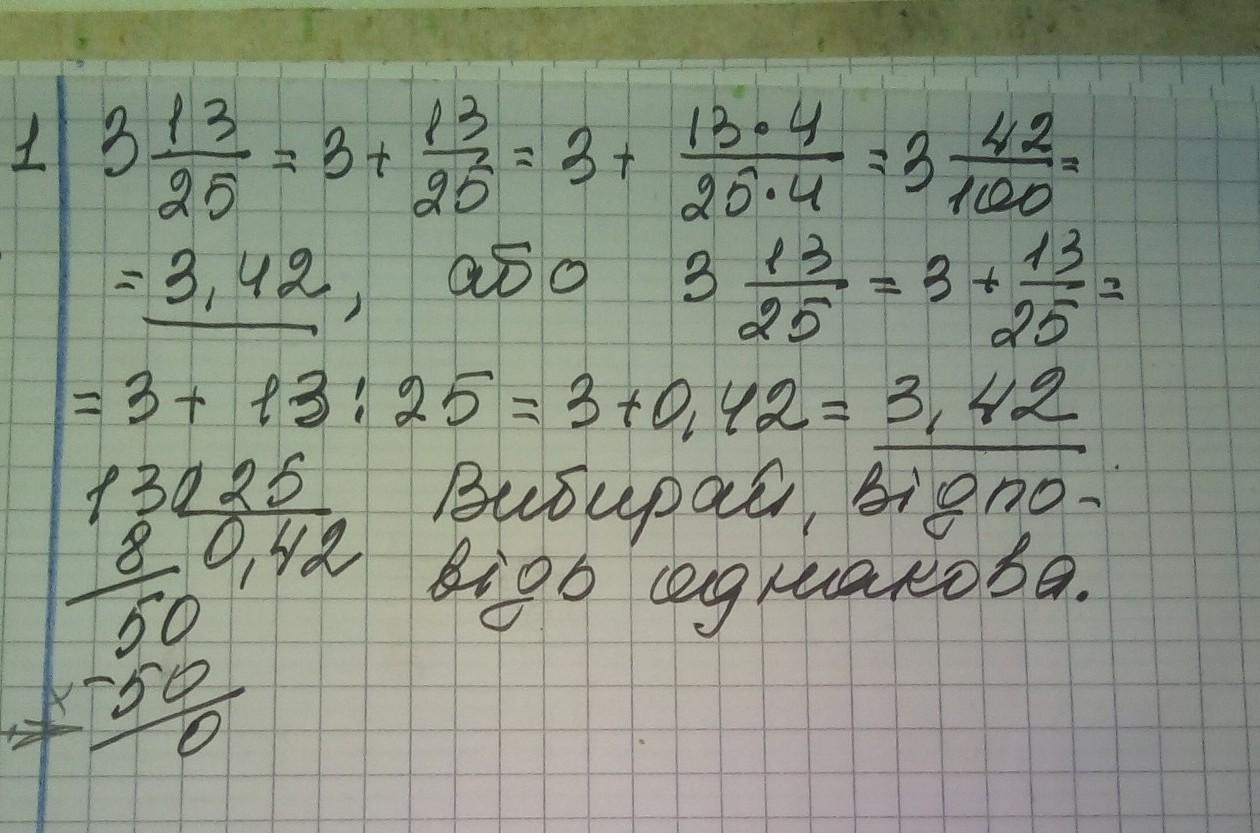 1 3 13/25 = 3 + 13/25 = 3 + 13·4/25·4 = 3 42/100 =
= 3,42, або 3 13/25 = 3 + 13/25 =
= 3 + 13 : 25 = 3 + 0,42 = 3,42
13 25 Вибирай, відпо-
8 0,42 відь однакова.
50
-50
0